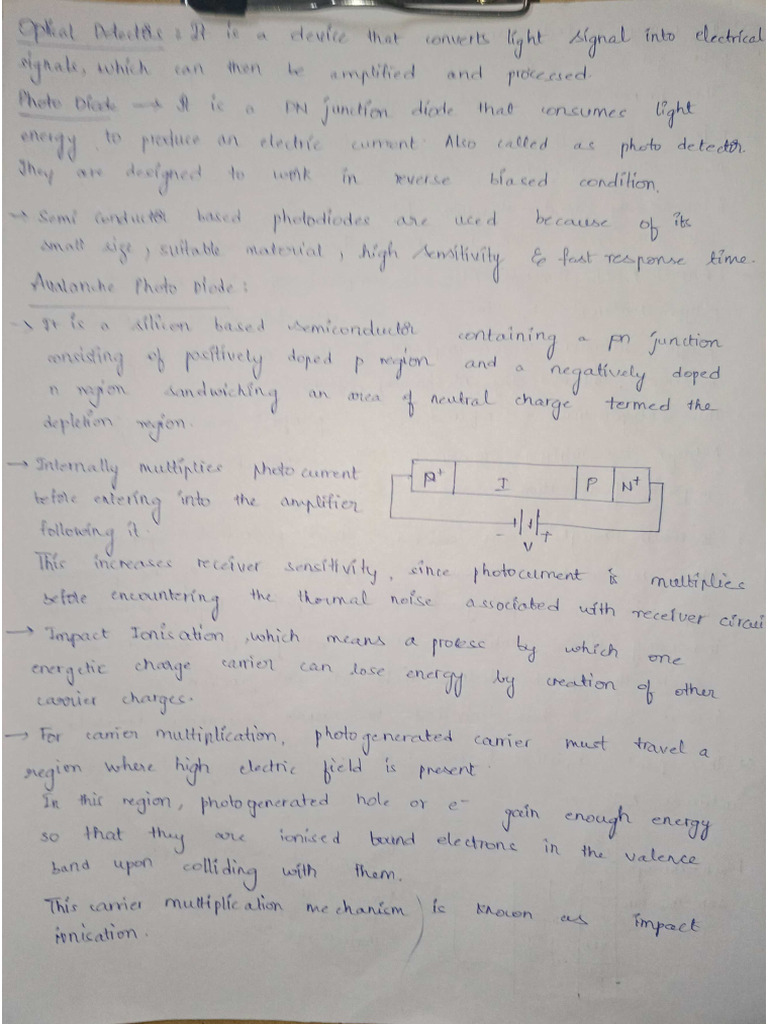 Optical Detectors : It is a device that converts light signal into electrical
signals, which can then be amplified and processed.
Photo Diode → It is a PN junction diode that consumes light
energy to produce an electric current. Also called as photo detector.
They are designed to work in reverse biased condition.
→ Semi conductor based photodiodes are used because of its
small size, suitable material, high sensitivity & fast response time.
Avalanche Photo Diode :
→ It is a silicon based semiconductor containing a pn junction
consisting of positively doped p region and a negatively doped
n region sandwiching an area of neutral charge termed the
depletion region.
→ Internally multiplies photo current
before entering into the amplifier
following it.
P+ I P N+
- V +
This increases receiver sensitivity, since photocurrent is multiplies
before encountering the thermal noise associated with receiver circui
→ Impact Ionisation, which means a process by which one
energetic charge carrier can lose energy by creation of other
carrier charges.
→ For carrier multiplication, photogenerated carrier must travel a
region where high electric field is present.
In this region, photogenerated hole or e- gain enough energy
so that they are ionised bound electrons in the valence
band upon colliding with them.
This carrier multiplication mechanism is known as impact
ionisation.